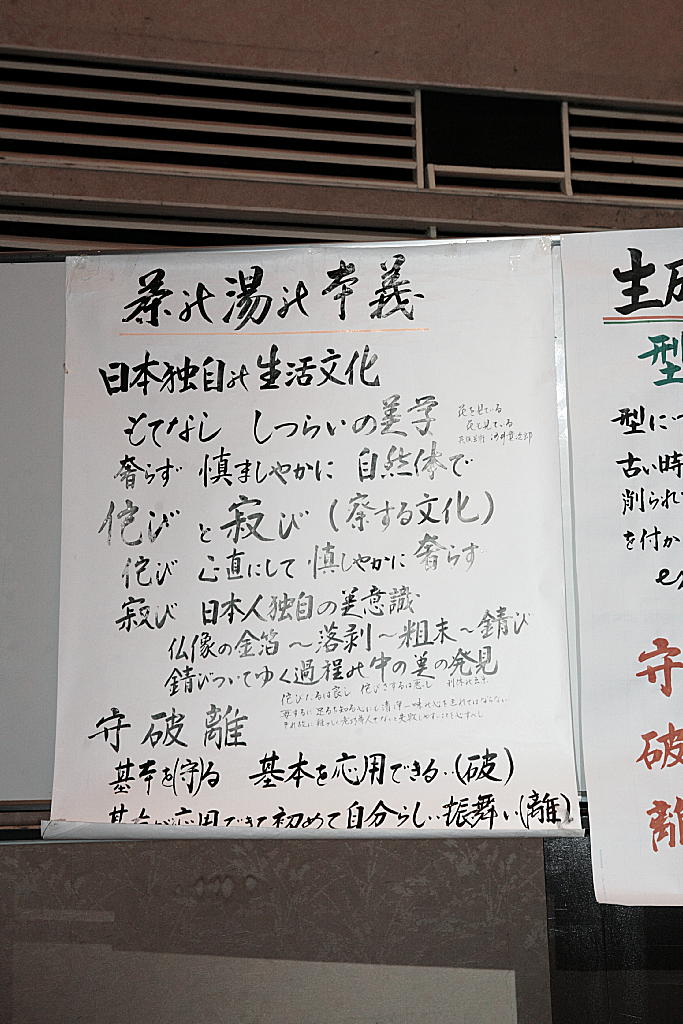 茶の湯の本義
日本独自の生活文化
もてなし しつらいの美学
花を見ている
花と見ている
奢らず 慎ましやかに 自然体で
侘び と 寂び (察する文化)
侘び 心直にして 慎しやかに 奢らず
寂び 日本人独自の美意識
仏像の金箔～落剥～粗末～錆び
錆びついてゆく過程の中の美の発見
侘びたるは良し 侘びさするは悪し
守 破 離
基本を(守)る 基本を応用できる‥(破)
基本が応用できて初めて自分らしい振舞い(離)
生成
型
型に
古い時
削られ
を付か
守
破
離